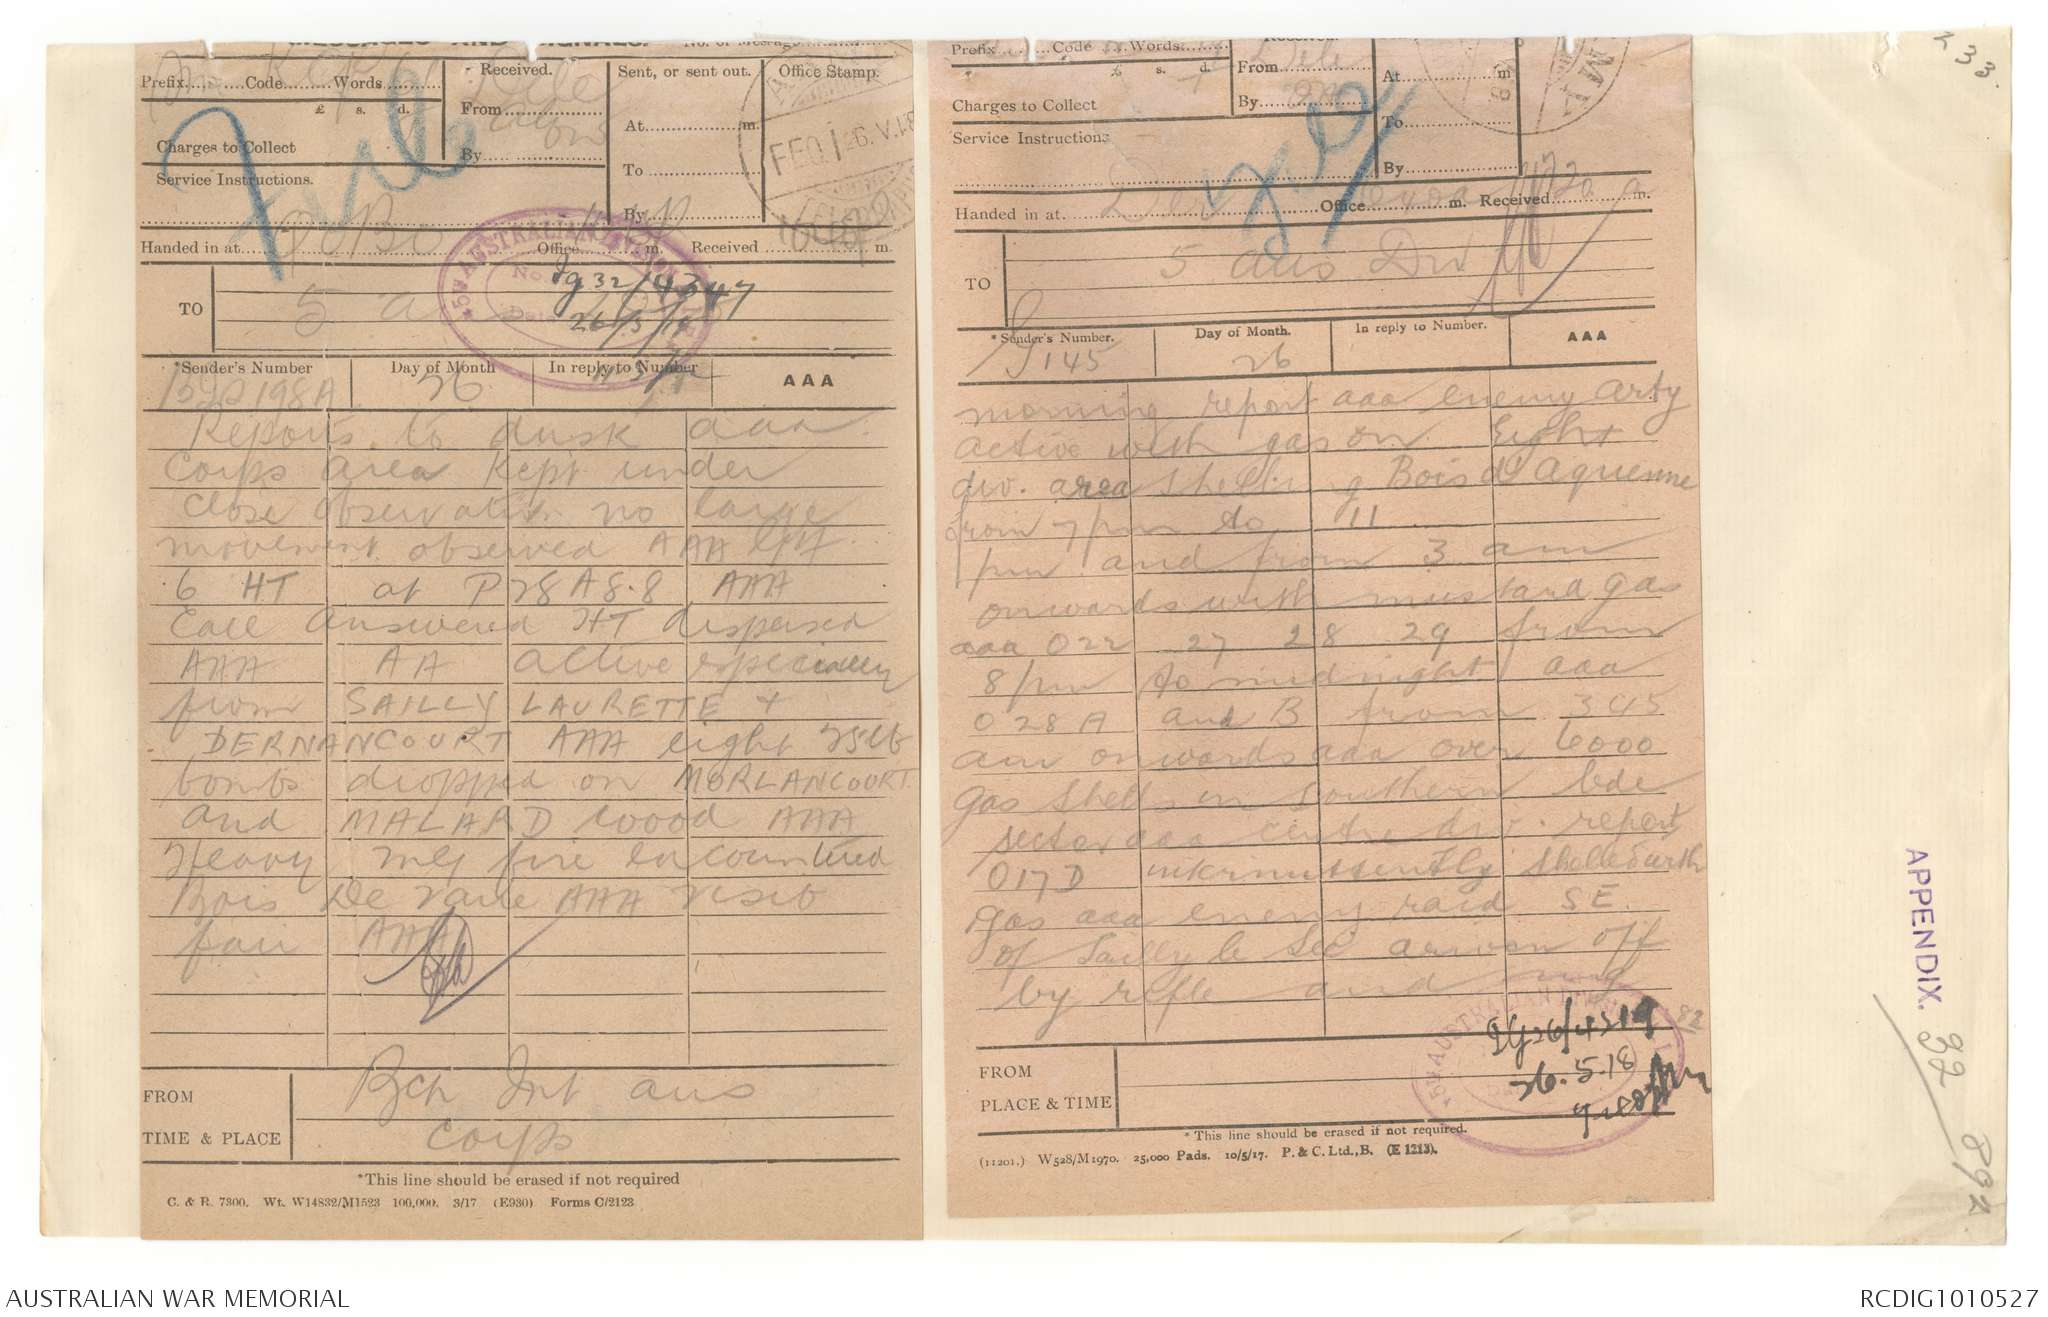 MESSAGES AND SIGNALS. No. of Message
Prefix Code Words
£ s. d.
Charges to Collect
Service Instructions.
Received.
From
By
Sent, or sent out.
At m.
To
By
Office Stamp.
FEO1 26.V.18
File
Handed in at Office m. Received m.
5TH AUSTRALIAN DIVISION
No. Ig 32/4347
Date 26/5/18
TO 5
*Sender's Number Day of Month In reply to Number AAA
198A 26
Reports to dusk aaa
Corps area kept under
close observation no large
movement observed AAA
6 HT at P28A8.8 AAA
Call answered HT dispersed
AAA AA active especially
from SAILLY LAURETTE +
DERNANCOURT AAA eight 25lb
bombs dropped on MORLANCOURT
and MALARD wood AAA
Heavy mg fire encountered
Bois De AAA visib
fair AAA
FROM
TIME & PLACE
Bch Int aus
Corps
*This line should be erased if not required
C. & R. 7300. Wt. W14832/M1523 100,000. 3/17 (E930) Forms C/2123
Prefix Code Words
£ s. d.
Charges to Collect
Service Instructions
Received.
From
By
At m
To
By
Handed in at Office m. Received m.
TO 5 aus Div
*Sender's Number. Day of Month. In reply to Number. AAA
G145 26
morning report aaa enemy arty
active with gas on Eight
div. area shelling Bois d'Aquenne
from 7pm to 11
pm and from 3 am
onwards with mustard gas
aaa O22 27 28 29 from
8 pm to midnight aaa
O 28 A and B from 345
am onwards aaa over 6000
gas shells in southern bde
sector aaa centre div. report
O17D intermittently shelled with
gas aaa enemy raid SE.
of Sailly le Sec driven off
by rifle and mg
82
5TH AUSTRALIAN DIVISION
Ig26/4319
26.5.18
FROM
PLACE & TIME
*This line should be erased if not required.
(11201.) W528/M1970. 25,000 Pads. 10/5/17. P. & C. Ltd., B. (E 1213).
233.
APPENDIX. 32
892
AUSTRALIAN WAR MEMORIAL
RCDIG1010527